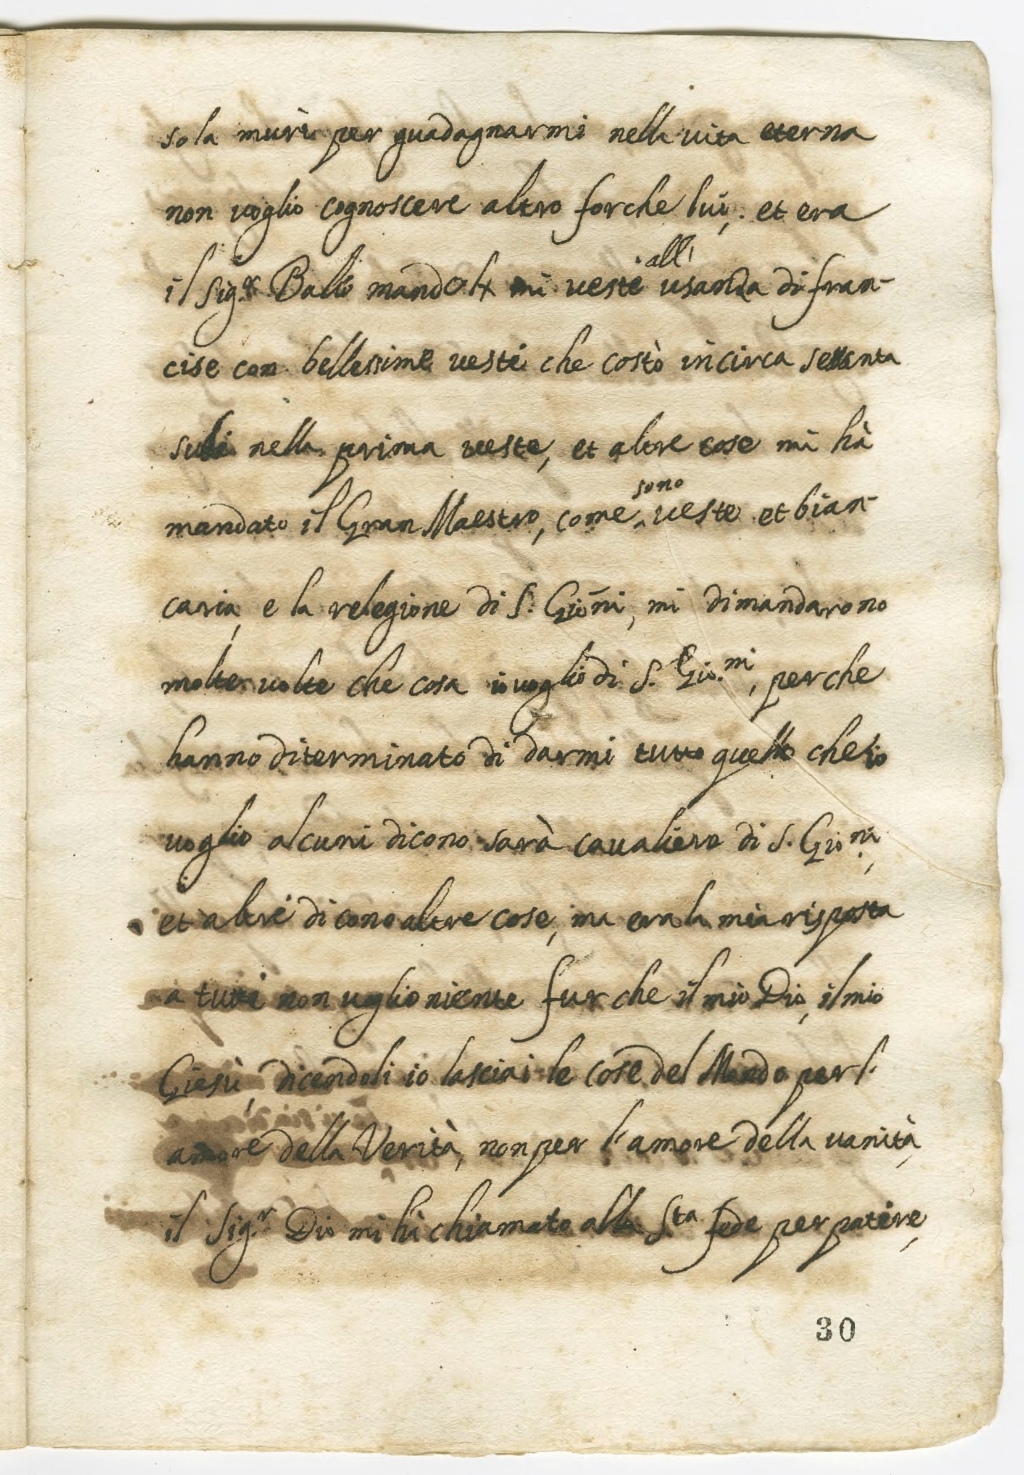 sola murì per guadagnarmi nella vita eterna
non voglio cognoscere altro forche lui, et era
il Sig.r Balì mandolx mi vestè all' usanza di fran-
cise con bellessime vesti che costò in circa sessenta
nella prima veste, et altre cose mi hà
mandato il Gran Maestro, come sono veste et bian-
caria, e la relegione di S. Gioñi, mi dimandarono
molte volte che cosa io voglio di S. Gio.ni, perche
hanno diterminato di darmi tutto quello che io
voglio alcuni dicono sarà cavaliero di S. Gio.ni,
et altri dicono altre cose, ma era la mia risposta
a tutti non voglio niente fur che il mio Dio, il mio
Giesù, dicendoli io lasciai le cose del Mondo per l'
amore della Verità, non per l'amore della vanità,
il Sig.r Dio mi hà chiamato alla S.ta fede per patire,
30